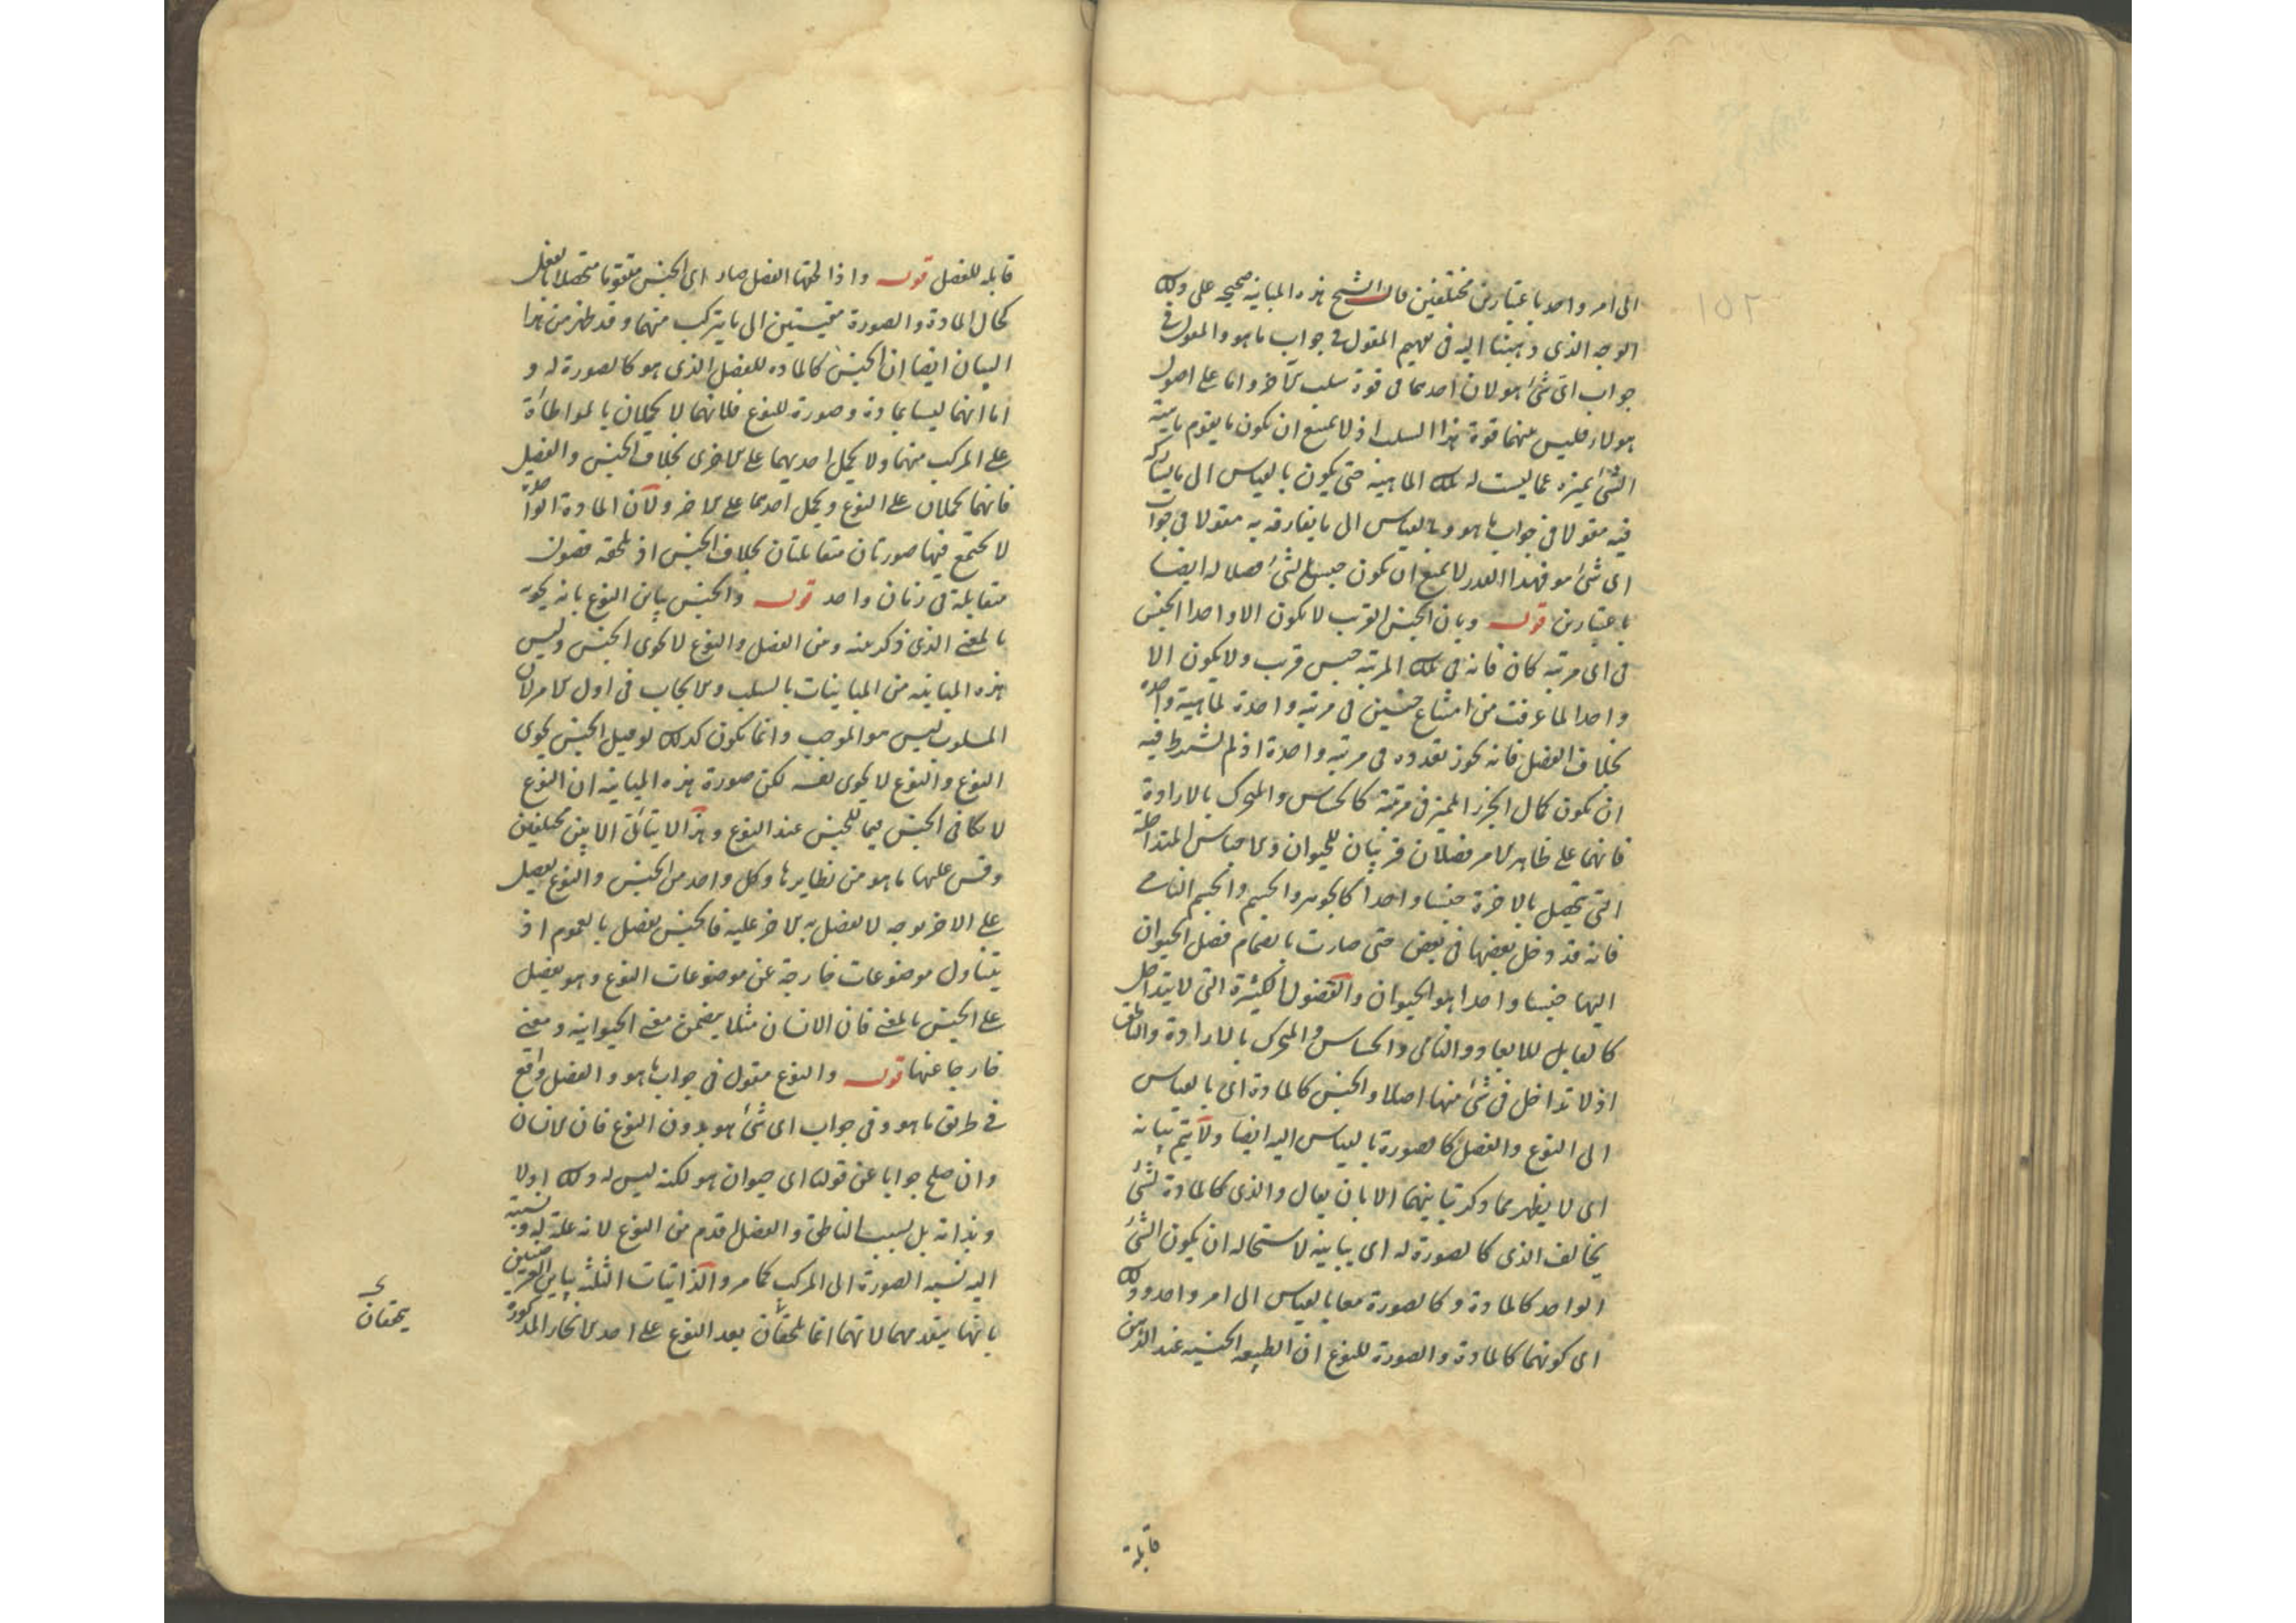 ١٥٢
الى امر واحد باعتبارين مختلفين قال الشيخ هذه المباينة صحيحة على ذلك
الوجه الذى ذهبنا اليه فى تفهيم المقول فى جواب ما هو والمقول فى
جواب اى شئ هو لان احدهما فى قوة سلب الآخر واما على اصول
هولاء فليس منهما قوة هذا السلب اذ لا يمنع ان يكون ما يقوم ماهية
الشئ يميزه عما ليست له تلك الماهية حتى يكون بالقياس الى ما يشاركه
فيه مقولا فى جواب ما هو وبالقياس الى ما يفارقه به مقولا فى جواب
اى شئ هو فهذا القدر لا يمنع ان يكون جنس الشئ فصلا له ايضا
باعتبارين قوله وبان الجنس القريب لا يكون الا واحدا الجنس
فى اى مرتبة كان فانه فى تلك المرتبة جنس قريب ولا يكون الا
واحدا لما عرفت من امتناع جنسين فى مرتبة واحدة لماهية واحدة
بخلاف الفصل فانه يجوز تعدده فى مرتبة واحدة اذ لم يشترط فيه
ان يكون كمال الجزء المميز فى مرتبة كالحساس والمتحرك بالارادة
فانهما على ظاهر الامر فصلان قريبان للحيوان والاجناس المتداخلة
التى تحصل بالآخرة جنسا واحدا كالجوهر والجسم والجسم النامى
فانه قد دخل بعضها فى بعض حتى صارت بانضمام فصل الحيوان
اليها جنسا واحدا هو الحيوان والفصول الكثيرة التى لا يتداخل
كالقابل للابعاد والنامى والحساس والمتحرك بالارادة والناطق
اذ لا تداخل فى شئ منها اصلا والجنس كالمادة اى بالقياس
الى النوع والفصل كالصورة بالقياس اليه ايضا ولا يتم بيانه
اى لا يظهر مما ذكر تباينهما الا بان يقال والذى كالمادة لشئ
يخالف الذى كالصورة له اى يباينه لاستحالة ان يكون الشئ
الواحد كالمادة وكالصورة معا بالقياس الى امر واحد وذلك
اى كونهما كالمادة والصورة للنوع ان الطبيعة الجنسية عند الذهن
قابلة
قابلة للفصل قوله واذا لحقها الفصل صار اى الجنس متقوما متحصلا بالفعل
كحال المادة والصورة مقيستين الى ما يتركب منهما وقد ظهر من هذا
البيان ايضا ان الجنس كالمادة للفصل الذى هو كالصورة له و
اما انهما ليسا بمادة وصورة للنوع فلانهما لا يحملان بالمواطاة
على المركب منهما ولا يحمل احديهما على الاخرى بخلاف الجنس والفصل
فانهما يحملان على النوع ويحمل احدهما على الاخر ولان المادة الواحدة
لا تجتمع فيها صورتان متقابلتان بخلاف الجنس اذ تلحقه فصول
متقابلة فى زمان واحد قوله والجنس يباين النوع بانه يحويه
بالمعنى الذى ذكر منه ومن الفصل والنوع لا يحوى الجنس وليس
هذه المباينة من المباينات بالسلب والايجاب فى اول الامر لان
المسلوب ليس هو الموجب وانما يكون كذلك لو قيل الجنس يحوى
النوع والنوع لا يحوى نفسه لكن صورة هذه المباينة ان النوع
لا يكافى الجنس فيما للجنس عند النوع وهذا لا يتأتى الا بين مختلفين
وقس عليها ما هو من نظايرها وكل واحد من الجنس والنوع يفضل
على الاخر بوجه لا يفضل به الاخر عليه فالجنس يفضل بالعموم اذ
يتناول موضوعات خارجة عن موضوعات النوع وهو يفضل
على الجنس بالمعنى فان الانسان مثلا يتضمن معنى الحيوانية ومعنى
خارجا عنها قوله والنوع مقول فى جواب ما هو والفصل واقع
فى طريق ما هو وفى جواب اى شئ هو بدون النوع فان الانسان
وان صلح جوابا عن قولنا اى حيوان هو لكنه ليس له ذلك اولا
وبذاته بل بسبب الناطق والفصل اقدم من النوع لانه علة له ونسبته
اليه نسبة الصورة الى المركب كما مر والذاتيات الثلثة يباين العرضيين
بانها يتقدمهما لانهما انما يلحقان بعد النوع على احد الانحاء المذكورة
يلحقان